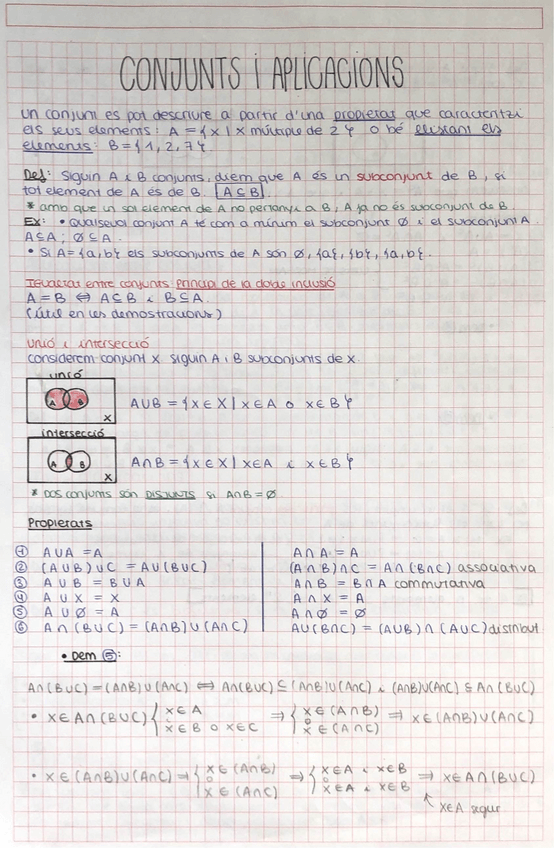 CONJUNTS i APLICACIONS
un conjunt es pot descriure a partir d'una propietat que caracteritzi
els seus elements: A = {x | x múltiple de 2} o bé llistant els
elements: B = {1, 2, 7}.
Def: Siguin A i B conjunts, diem que A és un subconjunt de B, si
tot element de A és de B. A ⊆ B
* amb que un sol element de A no pertanyi a B, A ja no és subconjunt de B.
Ex: • Qualsevol conjunt A té com a mínim el subconjunt Ø i el subconjunt A.
A ⊆ A ; Ø ⊆ A.
• Si A = {a, b} els subconjunts de A són Ø, {a}, {b}, {a, b}.
Igualtat entre conjunts Principi de la doble inclusió
A = B ⇔ A ⊆ B i B ⊆ A.
(útil en les demostracions)
unió i intersecció
considerem conjunt X. siguin A i B subconjunts de X.
unió
A B X
A∪B = {x ∈ X | x ∈ A o x ∈ B}
intersecció
A B X
A∩B = {x ∈ X | x ∈ A i x ∈ B}
* Dos conjunts són DISJUNTS si A∩B = Ø.
Propietats
① A∪A = A A∩A = A
② (A∪B)∪C = A∪(B∪C) (A∩B)∩C = A∩(B∩C) associativa
③ A∪B = B∪A A∩B = B∩A commutativa
④ A∪X = X A∩X = A
⑤ A∪Ø = A A∩Ø = Ø
⑥ A∩(B∪C) = (A∩B)∪(A∩C) A∪(B∩C) = (A∪B)∩(A∪C) distribut
• Dem ⑤:
A∩(B∪C) = (A∩B)∪(A∩C) ⇔ A∩(B∪C) ⊆ (A∩B)∪(A∩C) i (A∩B)∪(A∩C) ⊆ A∩(B∪C)
• x ∈ A∩(B∪C) { x ∈ A ⇒ { x ∈ (A∩B) ⇒ x ∈ (A∩B)∪(A∩C)
x ∈ B o x ∈ C o x ∈ (A∩C)
• x ∈ (A∩B)∪(A∩C) ⇒ { x ∈ (A∩B) ⇒ { x ∈ A i x ∈ B ⇒ x ∈ A∩(B∪C)
o x ∈ (A∩C) o x ∈ A i x ∈ B
↖ x ∈ A segur